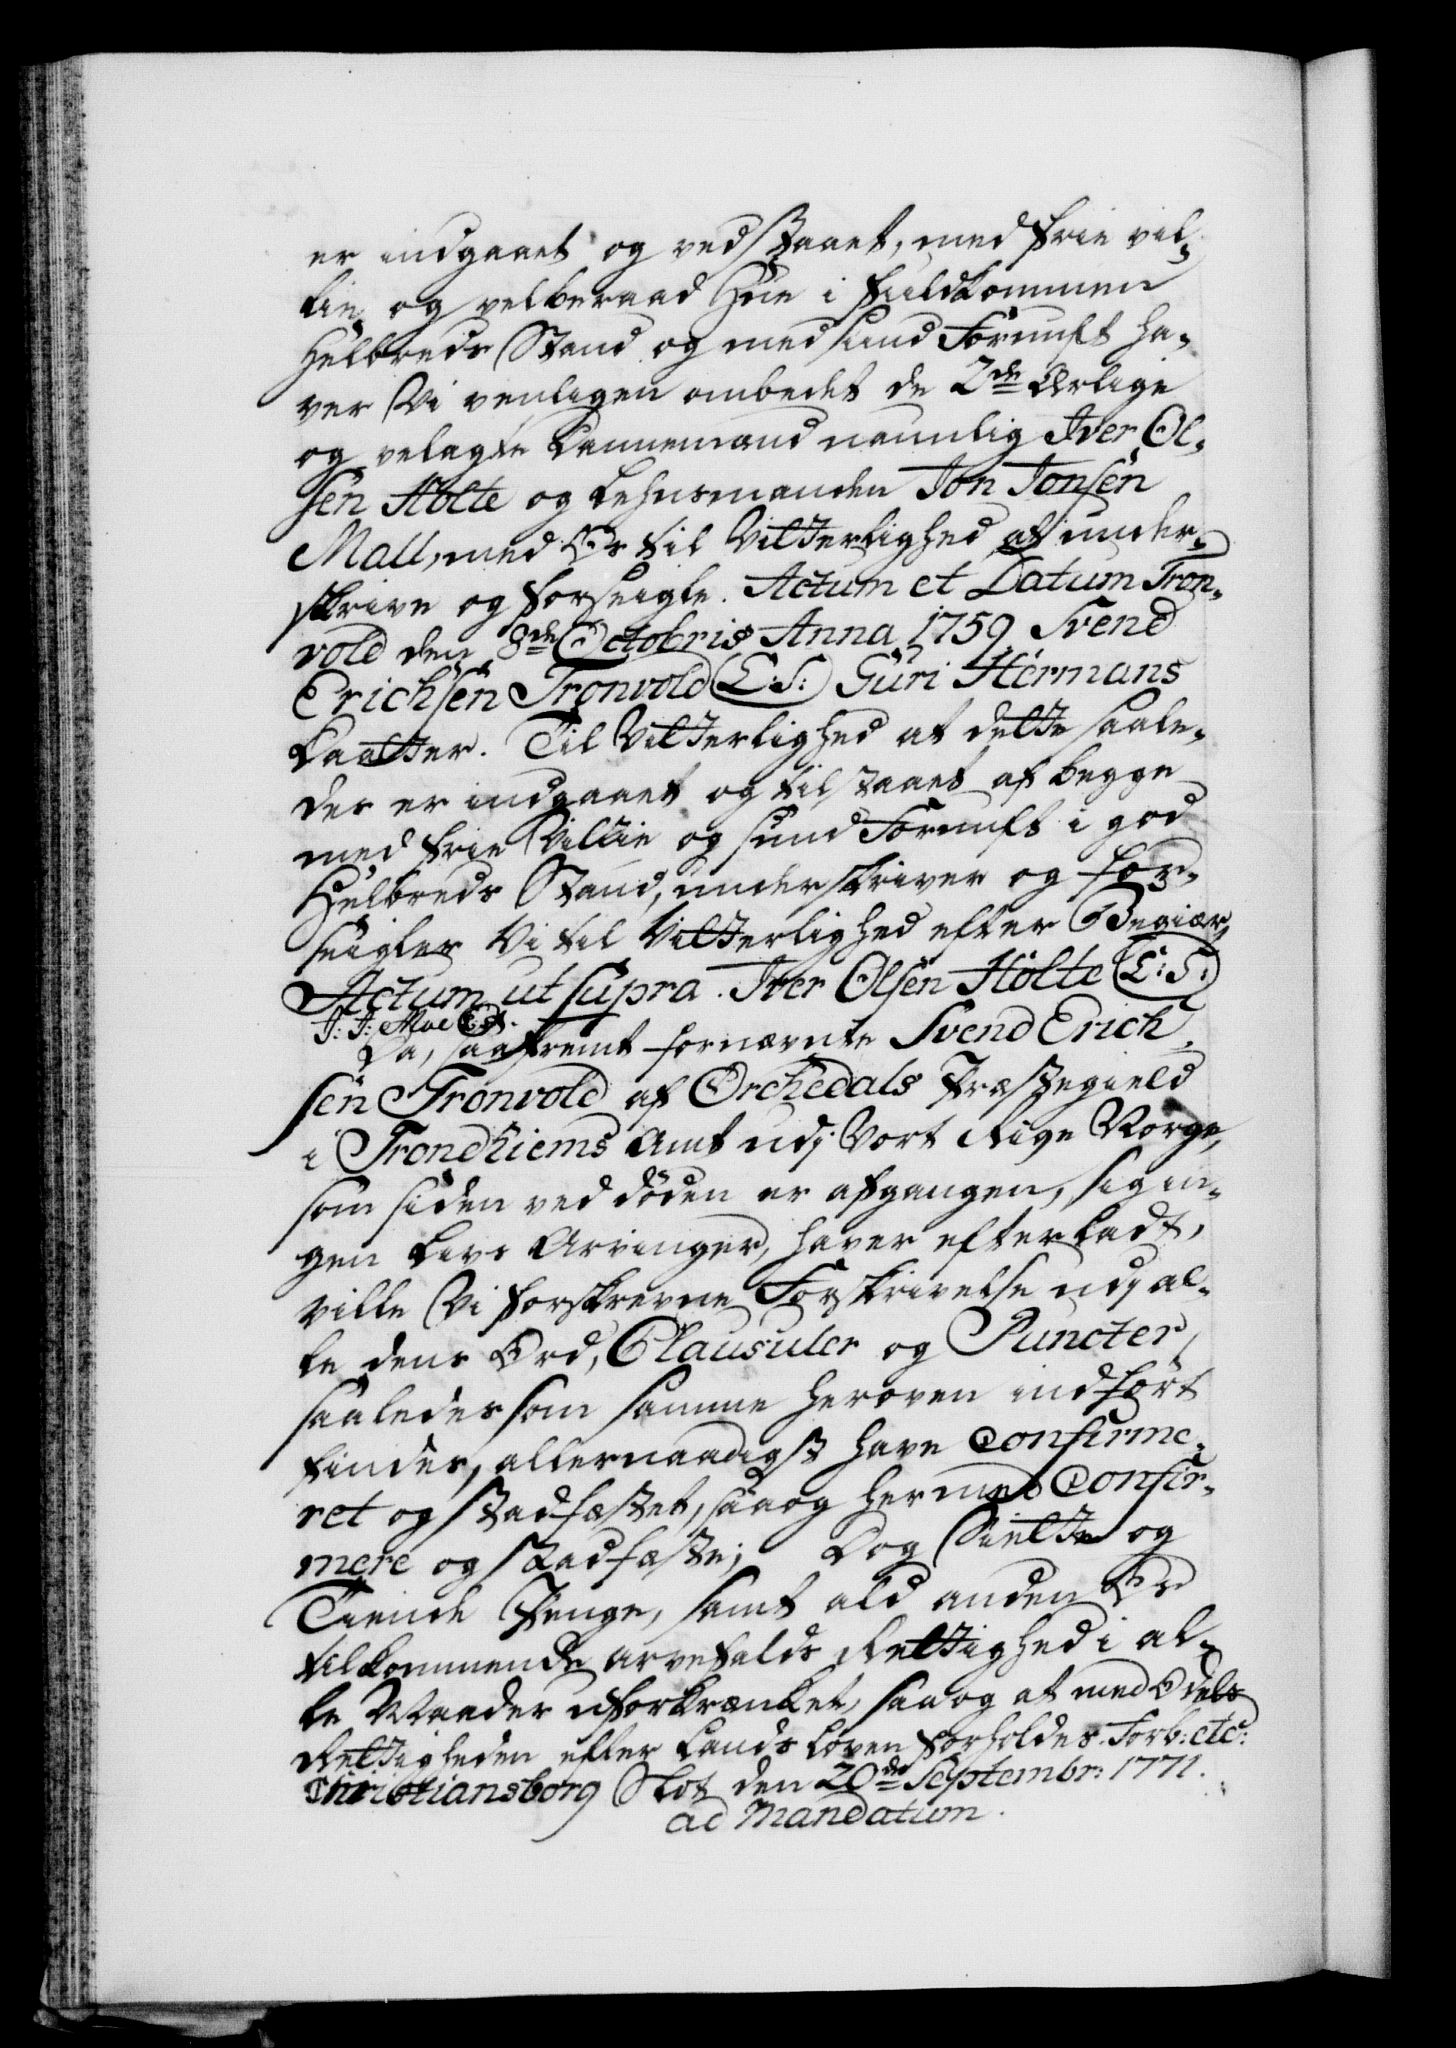 er indgaaet og vedstaaet, med frie vil-
lie og velberaad Hue i fuldkommen
Helbreds Stand og med sund Fornuft ha-
ver Vi venligen ombedet de 2de Ærlige
og velagte Dannemænd navnlig Iver Ol-
sen Holte og Lehnsmanden Jon Jonsen
Mall, med Os til Vitterlighed at under-
skrive og forseigle. Actum et Datum Tron-
vold den 8de Octobris Anna 1759 Svend
Erichsen Tronvold (L:S:) Guri Hermans
Daatter. Til Vitterlighed at dette saale-
des er indgaaet og tilstaaet af begge
med frie Villie og sund Fornuft i god
Helbreds Stand, underskriver og for-
seigler Vi til Vitterlighed efter Begiær,
Actum ut supra. Iver Olsen Holte (L:S:)
J: J: Moe (L:S:).
Da, saafremt fornævnte Svend Erich-
sen Tronvold af Orchedals Præstegield
i Trondhiems Amt udj Vort Rige Norge,
som siden ved døden er afgangen, sig in-
gen Livs Arvinger, haver efterladt,
ville Vi forskrevne Forskrivelse udj al-
le dens Ord, Clausuler og Puncter,
saaledes som samme heroven indført
findes, allernaadigst have Confirme-
ret og stadfæstet, saa og hermed Confir-
mere og stadfæste; Dog Siette og
Tiende Penge, samt ald anden Os
tilkommende arvefalds Rettighed i al-
le Maader uforkrænket, saa og at med Odels
Rettigheden efter Lands Loven forholdes. Forb: etc:
Christiansborg Slot den 20de Septembr: 1771.
ad Mandatum.